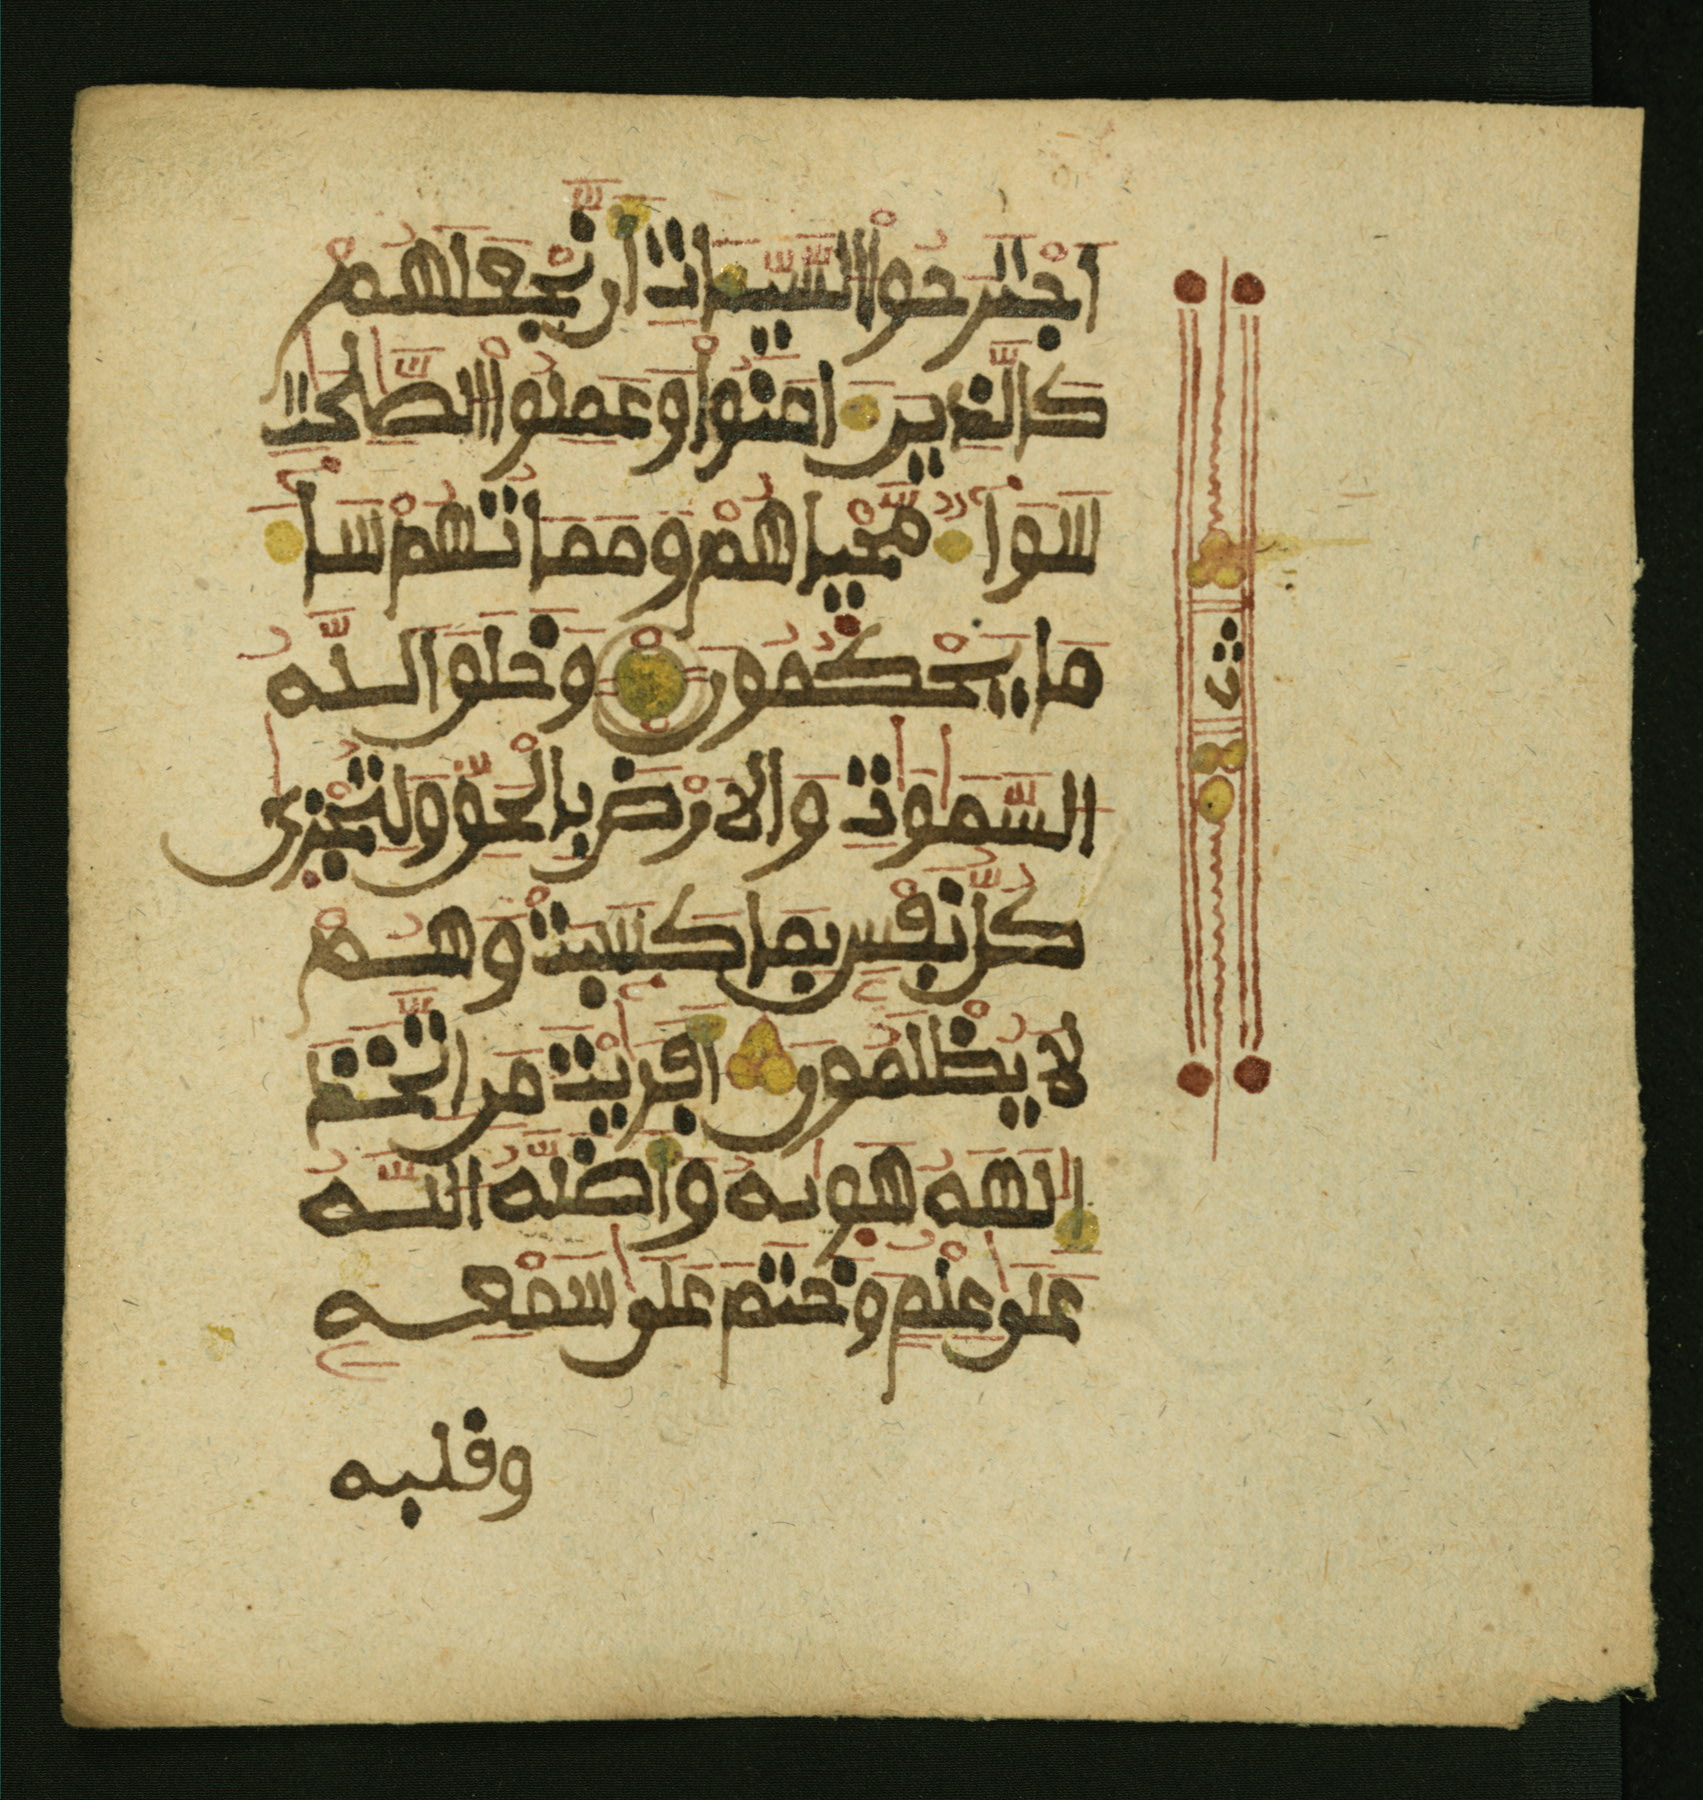 اجْتَرَحُواْ السَّيِّـَٔاتِ أَن نَّجْعَلَهُمْ
كَالذِينَ ءَامَنُواْ وَعَمِلُواْ الصَّٰلِحَٰتِ
سَوَآءٌ مَّحْيَاهُمْ وَمَمَاتُهُمْ سَآءَ
مَا يَحْكُمُونَ وَخَلَقَ اللَّهُ
السَّمَٰوَٰتِ وَالَارْضَ بِالْحَقِّ وَلِتُجْزَىٰ
كُلُّ نَفْسٍ بِمَا كَسَبَتْ وَهُمْ
لَا يُظْلَمُونَ أَفَرَٰيْتَ مَنِ اتَّخَذَ
إِلَٰهَهُ هَوَىٰهُ وَأَضَلَّهُ اللَّهُ
عَلَىٰ عِلْمٍ وَخَتَمَ عَلَىٰ سَمْعِهِ
وقلبه
ث